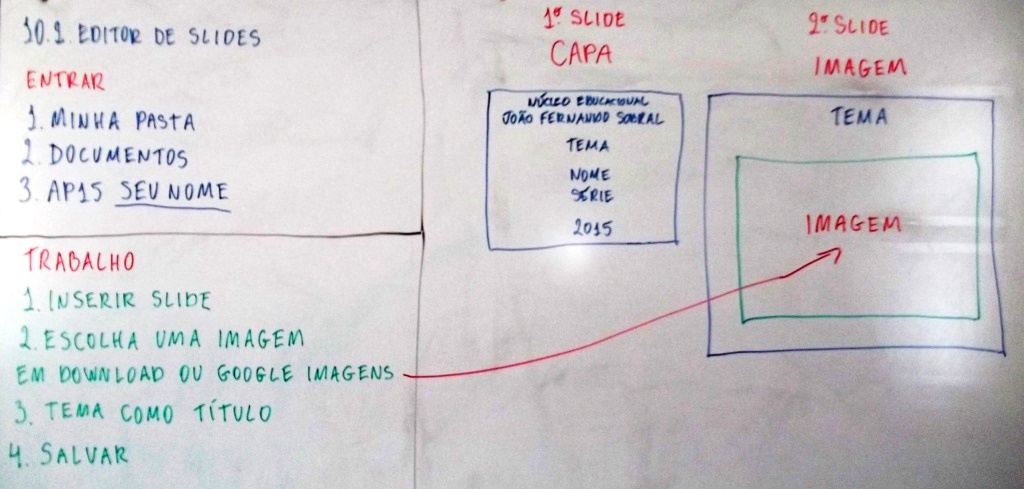 10.1. EDITOR DE SLIDES
ENTRAR
1. MINHA PASTA
2. DOCUMENTOS
3. AP15 SEU NOME
TRABALHO
1. INSERIR SLIDE
2. ESCOLHA UMA IMAGEM
EM DOWNLOAD OU GOOGLE IMAGENS
3. TEMA COMO TÍTULO
4. SALVAR
1º SLIDE
CAPA
NÚCLEO EDUCACIONAL
JOÃO FERNANDO SOBRAL
TEMA
NOME
SÉRIE
2015
2º SLIDE
IMAGEM
TEMA
IMAGEM